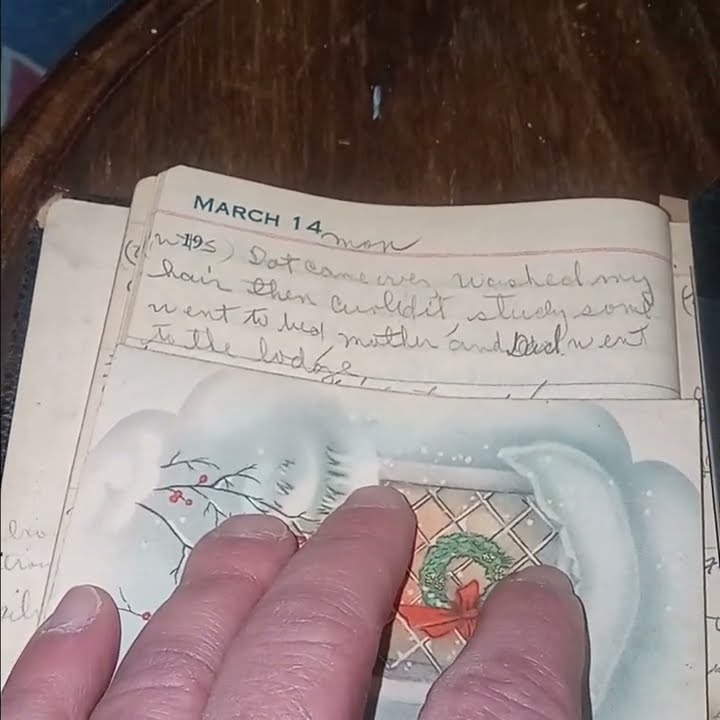 MARCH 14 mon
Dot came over washed my
hair then curled it, study some
went to bed, mother, and Dad went
to the lodge,